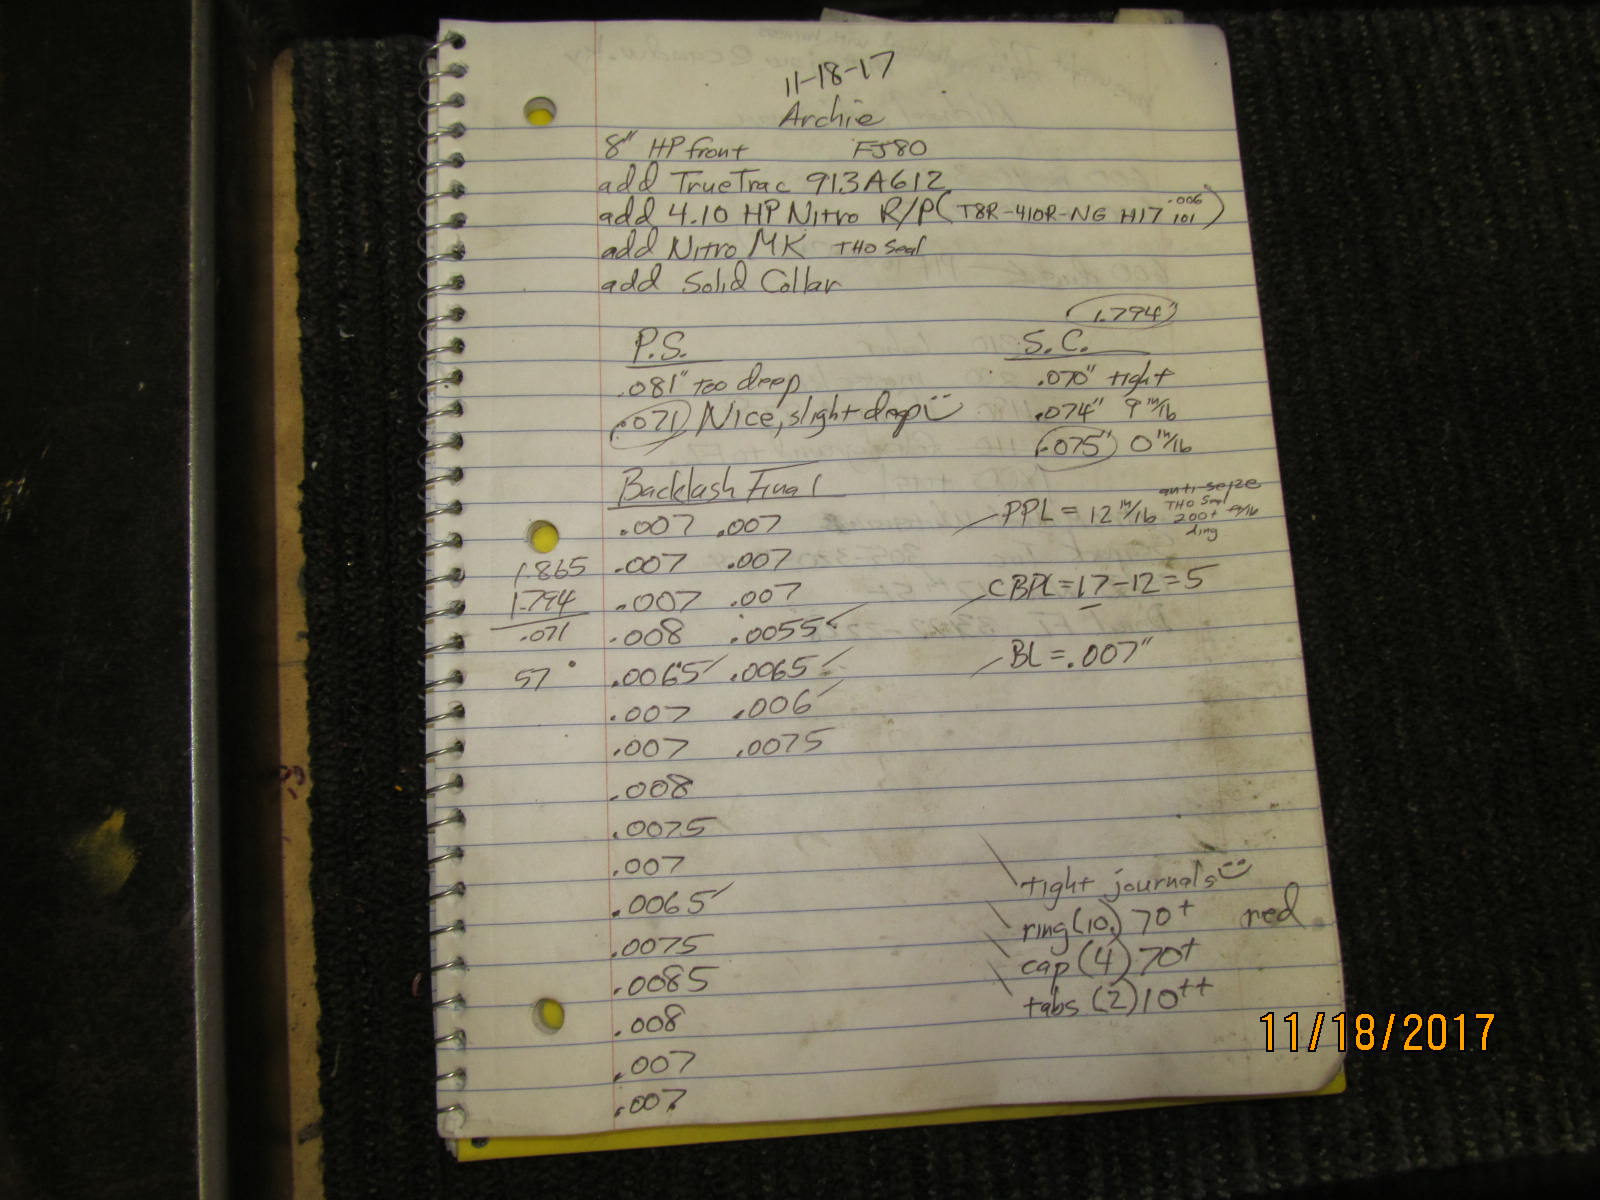 11-18-17
Archie
8" HP front FJ80
add TrueTrac 913A612
add 4.10 HP Nitro R/P (T8R-410R-NG H17 .006 101)
add Nitro MK THO Seal
add Solid Collar
1.794"
P.S.
.081" too deep
.071 Nice, slight deep
S.C.
.070" tight
.074" 9 in/lb
.075" 0 in/lb
Backlash Final
.007 .007
.007 .007
.007 .007
.008 .0055
.0065 .0065
.007 .006
.007 .0075
.008
.0075
.007
.0065
.0075
.0085
.008
.007
.007
1.865
1.794
.071
57°
PPL = 12 in/lb
anti-seize
THO Seal
200+ ft/lb
ding
CBPL = 17-12 = 5
BL = .007"
tight journals
ring (10) 70+ red
cap (4) 70+
tabs (2) 10++
11/18/2017